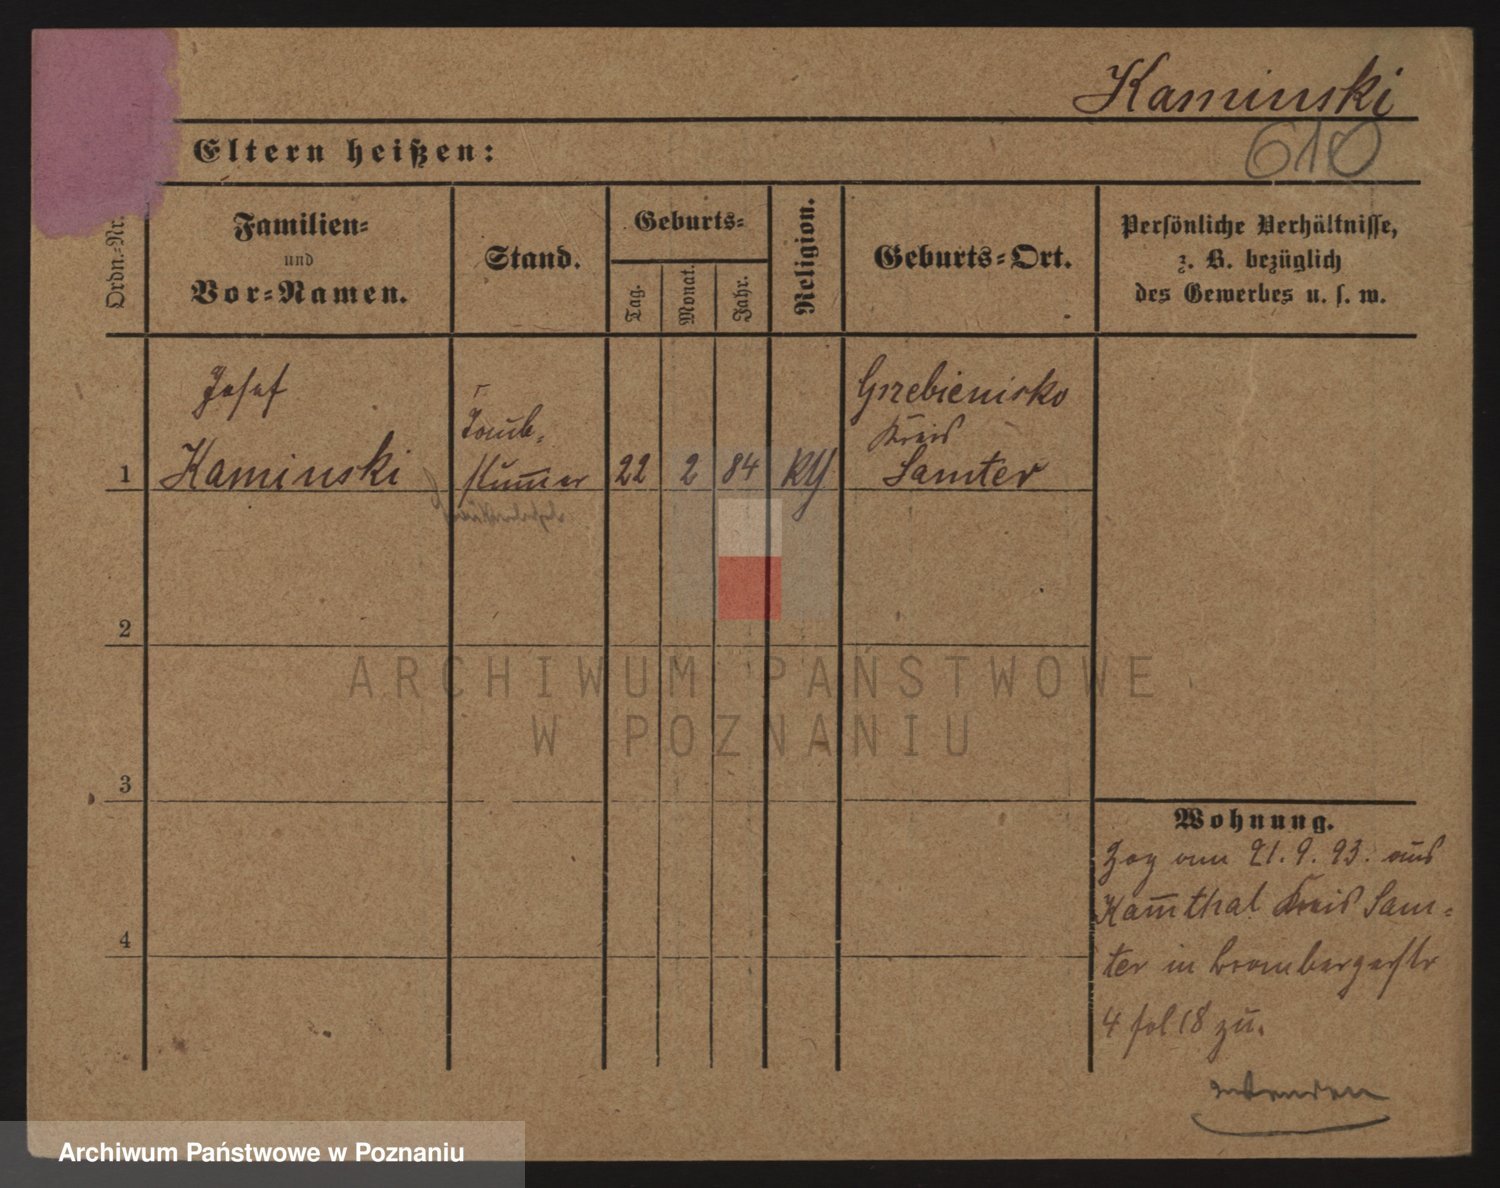 Kaminski
610
Eltern heißen:
Ordn.-Nr.
Familien-
und
Vor-Namen.
Stand.
Geburts-
Tag.
Monat.
Jahr.
Religion.
Geburts-Ort.
Persönliche Verhältnisse,
z. B. bezüglich
des Gewerbes u. s. w.
Josef
Kaminski
Taub-
stummer
1
22
2
84
Grzebienisko
Kreis
Samter
2
3
4
Wohnung.
Zog am 21. 9. 93. aus
Kammthal Kreis Sam-
ter in Brombergerstr
4 fol 18 zu.
ARCHIWUM PAŃSTWOWE
W POZNANIU
Archiwum Państwowe w Poznaniu